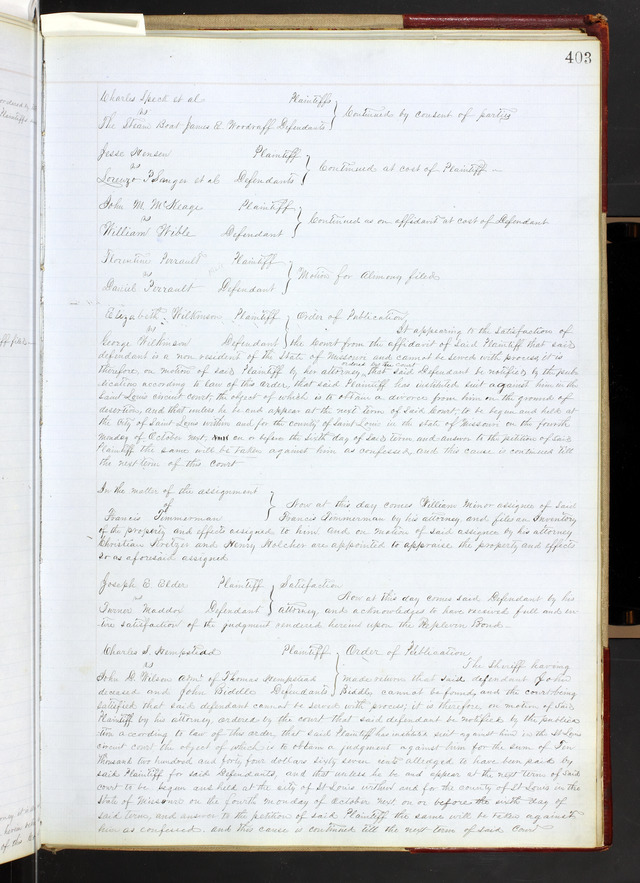 403
Charles Speck et al Plaintiffs
vs
The Steam Boat James E. Woodruff Defendants
Continued by consent of parties
Jesse Henson Plaintiff
vs
Lorenzo P Sanger et al Defendants
Continued at cost of Plaintiff
John M. McKeage Plaintiff
vs
William Wible Defendant
Continued as on affidavit at cost of Defendant
Florentine Perrault Plaintiff
vs
Daniel Perrault Defendant
Motion for Alimony filed
Elizabeth Wilkinson Plaintiff Order of Publication
vs It appearing to the satisfaction of
George Wilkinson Defendant the Court from the affidavit of said Plaintiff that said
defendant is a non resident of the State of Missouri and cannot be served with process, it is
ordered by the court
therefore, on motion of said Plaintiff by her attorney that said Defendant be notified by the pub
lication according to law of this order, that said Plaintiff has instituted suit against him in the
Saint Louis circuit court, the object of which is to obtain a divorce from him on the ground of
desertion, and that unless he be and appear at the next term of said Court, to be begun and held at
the City of Saint Louis within and for the county of Saint Louis in the state of Missouri on the fourth
Monday of October next, on or before the sixth day of said term, and answer to the petition of said
Plaintiff the same will be taken against him as confessed. and this cause is continued till
the next term of this Court
In the matter of the assignment
of
Francis Timmerman
Now at this day comes William Minor assignee of said
Francis Timmerman by his attorney and files an Inventory
of the property and effects assigned to him And on motion of said assignee by his attorney
Christian Kretzer and Henry Holcher are appointed to appraise the property and effects
so as aforesaid assigned
Joseph E. Elder Plaintiff Satisfaction
vs Now at this day comes said Defendant by his
Turner Maddox Defendant attorney, and acknowledges to have received full and en
tire satisfaction of the judgment rendered herein upon the Replevin Bond
Charles S. Hempstead Plaintiff Order of Publication
vs The Sheriff having
John D. Wilson admr. of Thomas Hempstead made return that said defendant John
deceased and John Biddle Defendants Biddle, cannot be found, and the court being
satisfied that said defendant cannot be served with process, it is therefore, on motion of said
Plaintiff by his attorney, ordered by the court that said defendant be notified by the publica
tion according to law of this order, that said Plaintiff has instituted suit against him in the St Louis
circuit court the object of which is to obtain a judgment against him for the sum of Ten
thousand two hundred and forty four dollars sixty seven cents alledged to have been paid by
said Plaintiff for said Defendants, and that unless he be and appear at the next term of said
court to be begun and held at the city of St Louis within and for the county of St Louis in the
State of Missouri on the fourth Monday of October next on or before the sixth day of
said term, and answer to the petition of said Plaintiff the same will be taken against
him as confessed. and this cause is continued till the next term of said Court